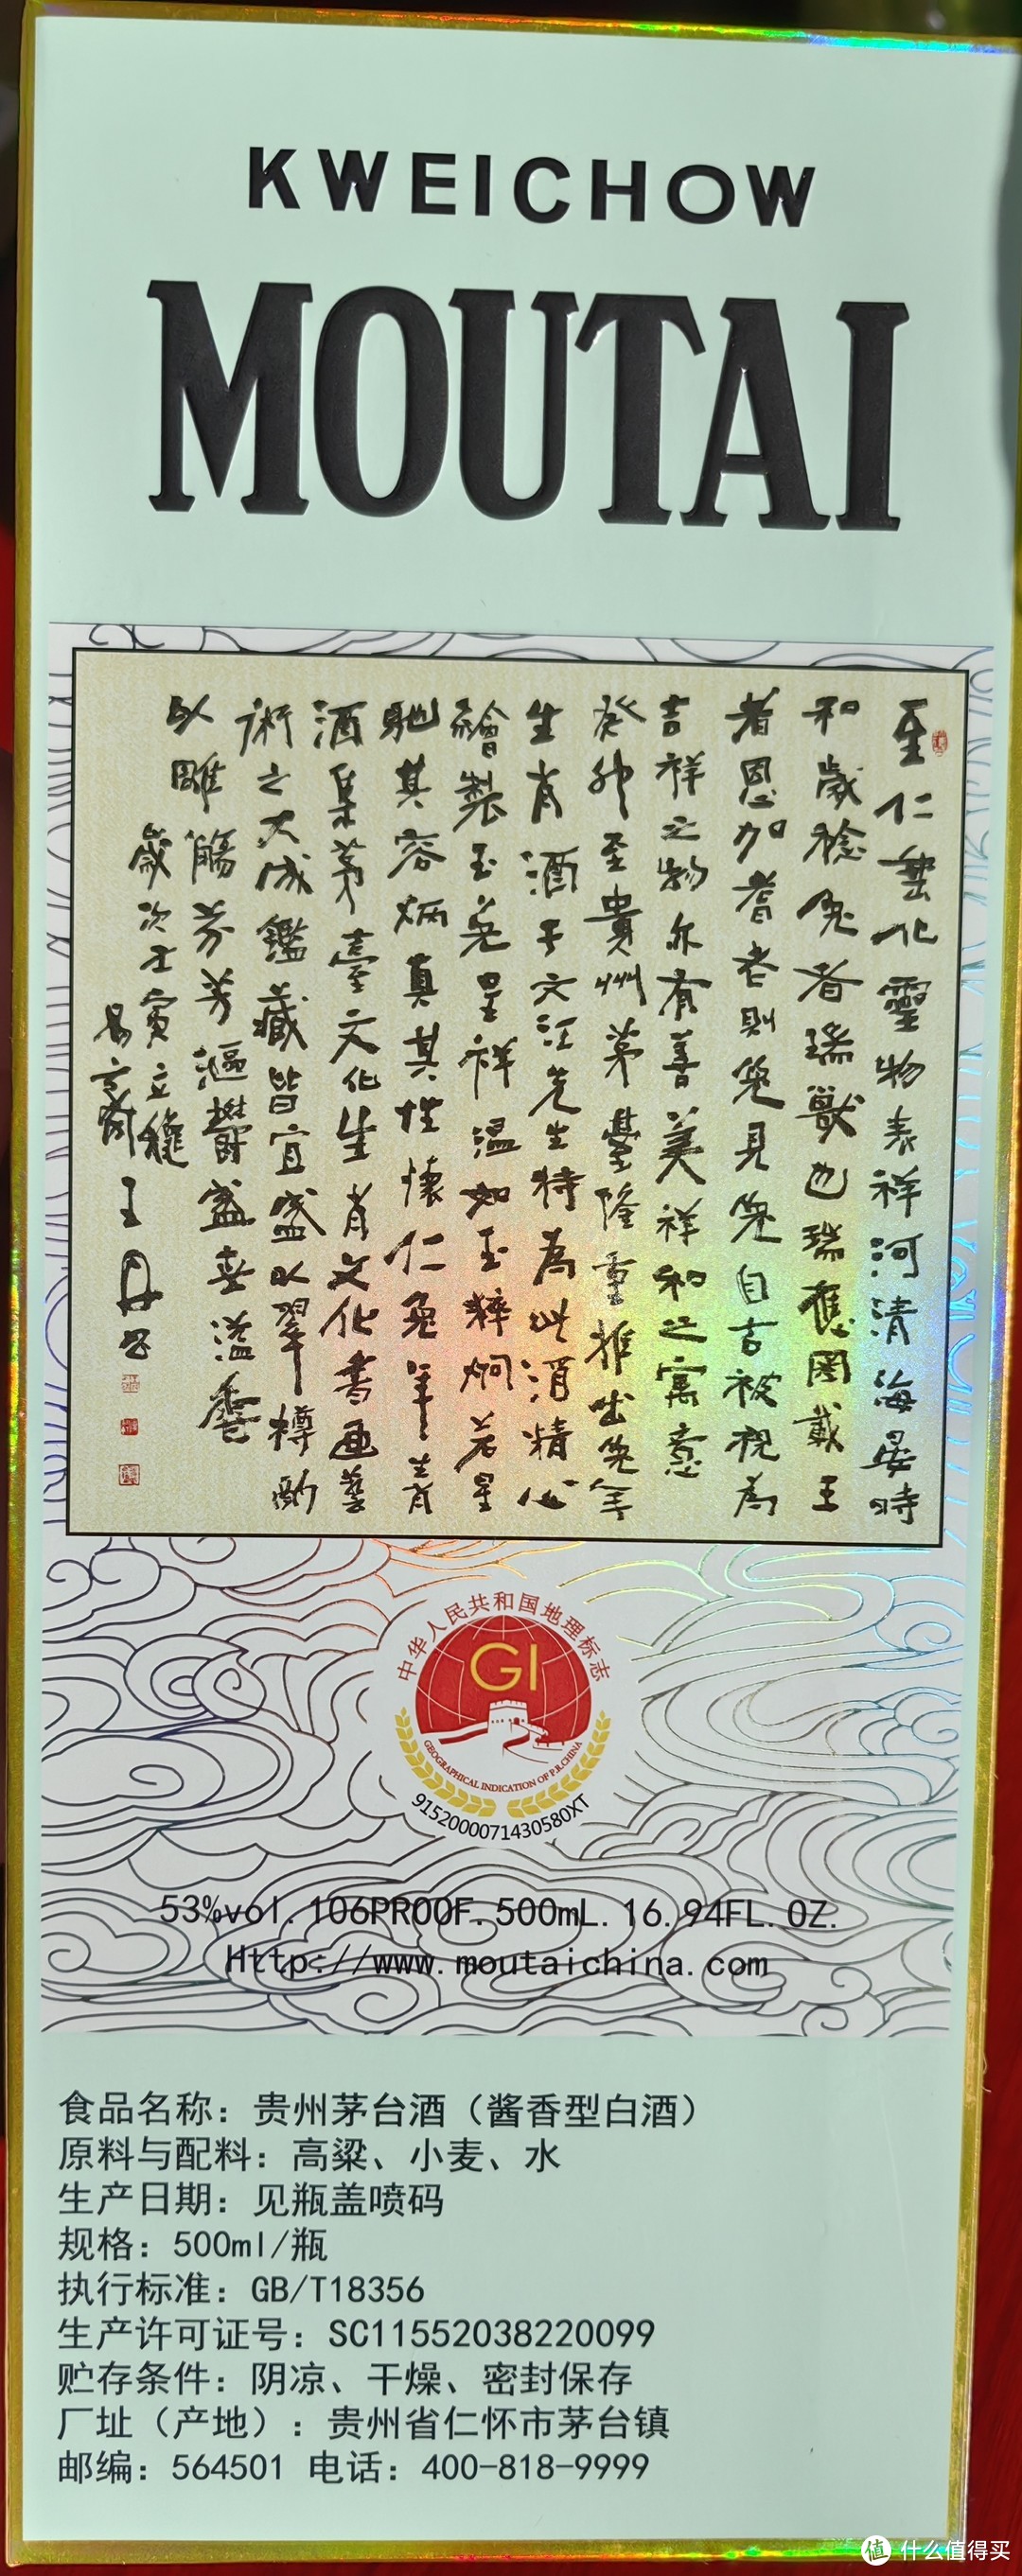 KWEICHOW
MOUTAI
至仁垂化靈物表祥河清海晏時
和歲稔兔者瑞獸也瑞應圖載王
者恩加耆老則兔見兔自古被視為
吉祥之物亦有善美祥和之寓意
癸卯至貴州茅臺隆重推出兔年
生肖酒于文江先生特為此酒精心
繪製玉兔呈祥溫如玉粹炯若星
馳其容炳真其性懷仁兔年生肖
酒集茅臺文化生肖文化書畫藝
術之大成鑑藏皆宜盛以翠樽酌
以雕觴芬芳漚鬱盈壺溢香
歲次壬寅立龝
王丹
中华人民共和国地理标志
GI
GEOGRAPHICAL INDICATION OF P.R.CHINA
9152000071430580XT
53%vol.106PROOF.500mL.16.94FL.OZ.
Http://www.moutaichina.com
食品名称：贵州茅台酒（酱香型白酒）
原料与配料：高粱、小麦、水
生产日期：见瓶盖喷码
规格：500ml/瓶
执行标准：GB/T18356
生产许可证号：SC11552038220099
贮存条件：阴凉、干燥、密封保存
厂址（产地）：贵州省仁怀市茅台镇
邮编：564501 电话：400-818-9999
值 什么值得买